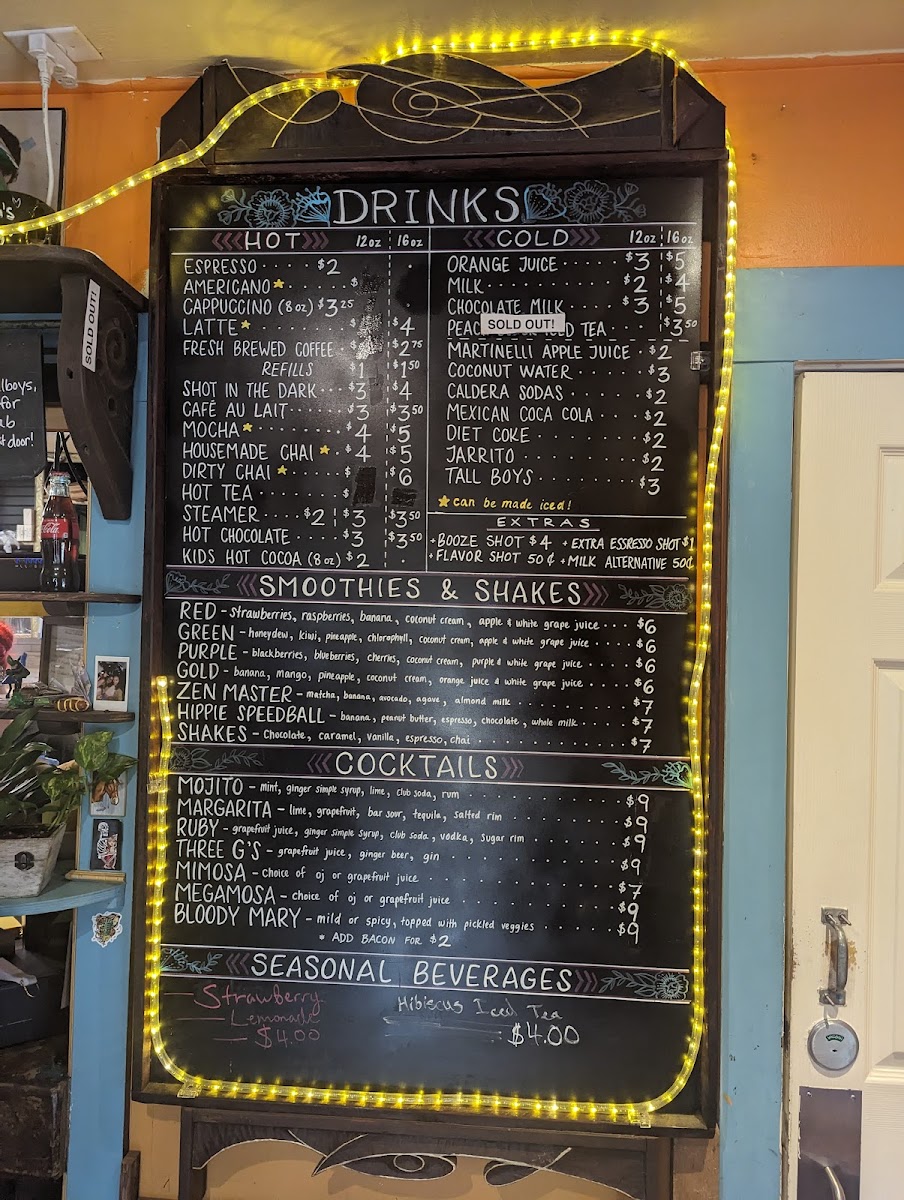 DRINKS
<<<HOT>>> 12oz 16oz
ESPRESSO $2
AMERICANO★ $
CAPPUCCINO (8oz) $3.25
LATTE★ $ $4
FRESH BREWED COFFEE $2.75
REFILLS $1 $1.50
SHOT IN THE DARK $3 $4
CAFÉ AU LAIT $3 $3.50
MOCHA★ $4 $5
HOUSEMADE CHAI★ $4 $5
DIRTY CHAI★ $6
HOT TEA $
STEAMER $2 $3 $3.50
HOT CHOCOLATE $3 $3.50
KIDS HOT COCOA (8oz) $2
<<<COLD>>> 12oz 16oz
ORANGE JUICE $3 $5
MILK $2 $4
CHOCOLATE MILK $3 $5
SOLD OUT!
TEA $3.50
MARTINELLI APPLE JUICE $2
COCONUT WATER $3
CALDERA SODAS $2
MEXICAN COCA COLA $2
DIET COKE $2
JARRITO $2
TALL BOYS $3
★can be made iced!
EXTRAS
+BOOZE SHOT $4 +EXTRA ESSRESSO SHOT $1
+FLAVOR SHOT 50¢ +MILK ALTERNATIVE 50¢
<<SMOOTHIES & SHAKES>>
RED - strawberries, raspberries, banana, coconut cream, apple & white grape juice $6
GREEN - honeydew, kiwi, pineapple, chlorophyll, coconut cream, apple & white grape juice $6
PURPLE - blackberries, blueberries, cherries, coconut cream, purple & white grape juice $6
GOLD - banana, mango, pineapple, coconut cream, orange juice & white grape juice $6
ZEN MASTER - matcha, banana, avocado, agave, almond milk $7
HIPPIE SPEEDBALL - banana, peanut butter, espresso, chocolate, whole milk $7
SHAKES - Chocolate, caramel, vanilla, espresso, chai $7
<<<COCKTAILS>>>
MOJITO - mint, ginger simple syrup, lime, club soda, rum $9
MARGARITA - lime, grapefruit, bar sour, tequila, salted rim $9
RUBY - grapefruit juice, ginger simple syrup, club soda, vodka, sugar rim $9
THREE G'S - grapefruit juice, ginger beer, gin $9
MIMOSA - choice of oj or grapefruit juice $7
MEGAMOSA - choice of oj or grapefruit juice $9
BLOODY MARY - mild or spicy, topped with pickled veggies $9
* ADD BACON FOR $2
<<<SEASONAL BEVERAGES>>>
Strawberry
Lemonade
$4.00
Hibiscus Iced Tea
$4.00
SOLD OUT!
for